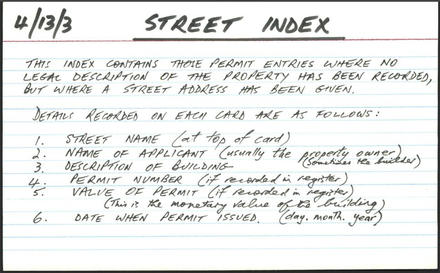 4/13/3 STREET INDEX
THIS INDEX CONTAINS THOSE PERMIT ENTRIES WHERE NO
LEGAL DESCRIPTION OF THE PROPERTY HAS BEEN RECORDED,
BUT WHERE A STREET ADDRESS HAS BEEN GIVEN.
DETAILS RECORDED ON EACH CARD ARE AS FOLLOWS:
1. STREET NAME (at top of card)
2. NAME OF APPLICANT (usually the property owner)
(sometimes the builder)
3. DESCRIPTION OF BUILDING
4. PERMIT NUMBER (if recorded in register)
5. VALUE OF PERMIT (if recorded in register)
(This is the monetary value of the building)
6. DATE WHEN PERMIT ISSUED. (day. month. year)